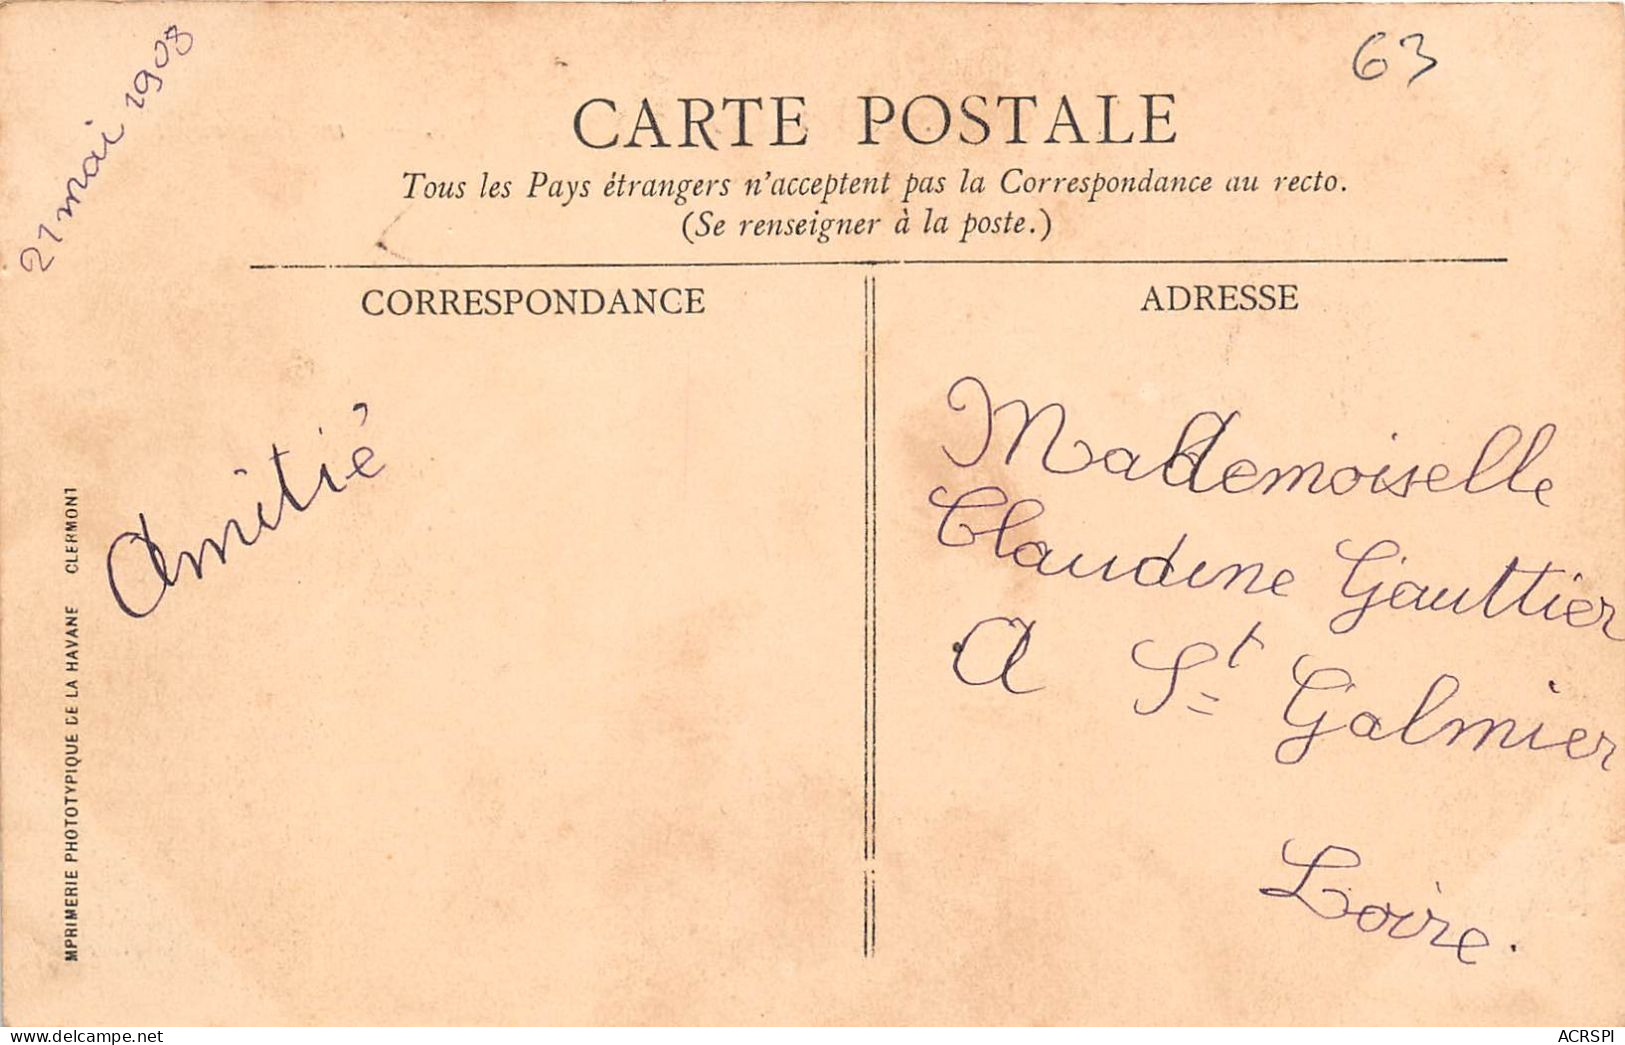 21 mai 1908
63
CARTE POSTALE
Tous les Pays étrangers n'acceptent pas la Correspondance au recto.
(Se renseigner à la poste.)
CORRESPONDANCE
ADRESSE
Amitié
Mademoiselle
Claudine Gauttier
A St Galmier
Loire.
MPRIMERIE PHOTOTYPIQUE DE LA HAVANE CLERMONT
delcampe.net
ACRSPI